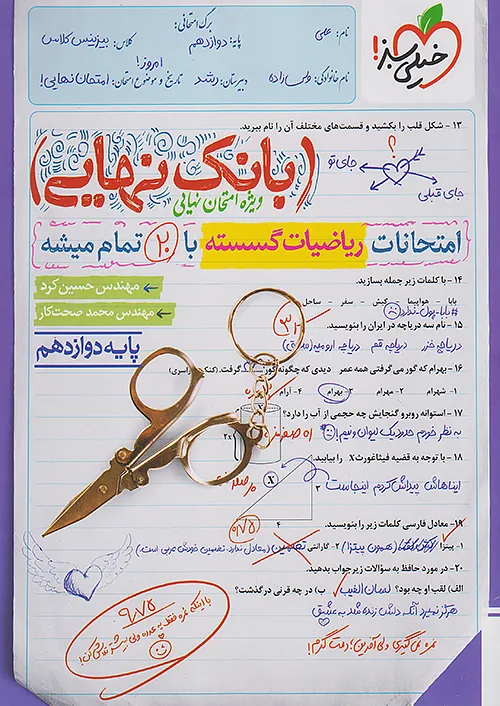 برگ امتحانی:
نام: علی
پایه: دوازدهم
کلاس: بیزینس کلاس
امروز!
نام خانوادگی:
دبیرستان: رشد
تاریخ و موضوع امتحان: امتحان نهایی!
خیلی سبز!
۱۳ - شکل قلب را بکشید و قسمت‌های مختلف آن را نام ببرید.
؟
جای تو
جای قبلی
(بانک نهایی)
ویژه امتحان نهایی
{امتحانات ریاضیات گسسته با ۲۰ تمام میشه}
۱۴ - با کلمات زیر جمله بسازید.
بابا - هواپیما - کیش - سفر - ساحل
#بابا_پول_ندارد
مهندس حسین کرد
مهندس محمد صحت‌کار
پایه دوازدهم
۱۵ - نام سه دریاچه در ایران را بنویسید.
دریاچه خزر دریاچه قم دریاچه ارومیه
۱۶ - بهرام که گور می‌گرفتی همه عمر دیدی که چگونه گور گرفت.
۱- شهرام ۲- مهرام ۳- بهرام ۴- آرام
۱۷ - استوانه روبرو گنجایش چه حجمی از آب را دارد؟
به نظر خودم حدود یک لیوان و نیم!
۱۸ - با توجه به قضیه فیثاغورث X را بیابید.
ایناهاش پیداش کردم اینجاست
X
۳
۴
2x
۱۹ - معادل فارسی کلمات زیر را بنویسید.
۱- پیتزا (همون پیتزا) ۲- گارانتی تضمین (معادل ندارد. تضمین خودش عربی است!)
۲۰ - در مورد حافظ به سؤالات زیر جواب بدهید.
الف) لقب او چه بود؟ لسان الغیب ب) در چه قرنی درگذشت؟
هرگز نمیرد آنکه دلش زنده شد به عشق
نمره نمی‌گیری ولی آفرین! دمت گرم!
۹/۷۵